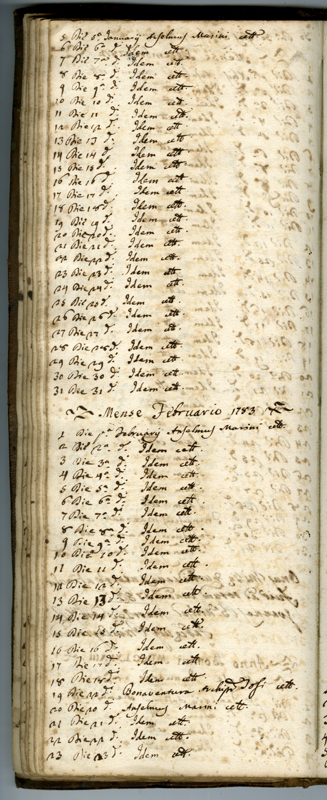 5 Die 5ª Januarij Anselmus Marini cett.
6 Die 6ª d. Idem cett.
7 Die 7ª d. Idem cett.
8 Die 8ª d. Idem cett.
9 Die 9ª d. Idem cett.
10 Die 10 d. Idem cett.
11 Die 11 d. Idem cett.
12 Die 12 d. Idem cett.
13 Die 13 d. Idem cett.
14 Die 14 d. Idem cett.
15 Die 15 d. Idem cett.
16 Die 16 d. Idem cett.
17 Die 17 d. Idem cett.
18 Die 18 d. Idem cett.
19 Die 19 d. Idem cett.
20 Die 20 d. Idem cett.
21 Die 21 d. Idem cett.
22 Die 22 d. Idem cett.
23 Die 23 d. Idem cett.
24 Die 24 d. Idem cett.
25 Die 25 d. Idem cett.
26 Die 26 d. Idem cett.
27 Die 27 d. Idem cett.
28 Die 28 d. Idem cett.
29 Die 29 d. Idem cett.
30 Die 30 d. Idem cett.
31 Die 31 d. Idem cett.
Mense Februario 1783
1 Die pª Februarij Anselmus Marini cett.
2 Die 2ª d. Idem cett.
3 Die 3ª d. Idem cett.
4 Die 4ª d. Idem cett.
5 Die 5ª d. Idem cett.
6 Die 6ª d. Idem cett.
7 Die 7ª d. Idem cett.
8 Die 8ª d. Idem cett.
9 Die 9ª d. Idem cett.
10 Die 10 d. Idem cett.
11 Die 11 d. Idem cett.
12 Die 12 d. Idem cett.
13 Die 13 d. Idem cett.
14 Die 14 d. Idem cett.
15 Die 15 d. Idem cett.
16 Die 16 d. Idem cett.
17 Die 17 d. Idem cett.
18 Die 18 d. Idem cett.
19 Die d. Bonaventura cett.
20 Die 20 d. Anselmus Marini cett.
21 Die 21 d. Idem cett.
22 Die 22 d. Idem cett.
23 Die 23 d. Idem cett.